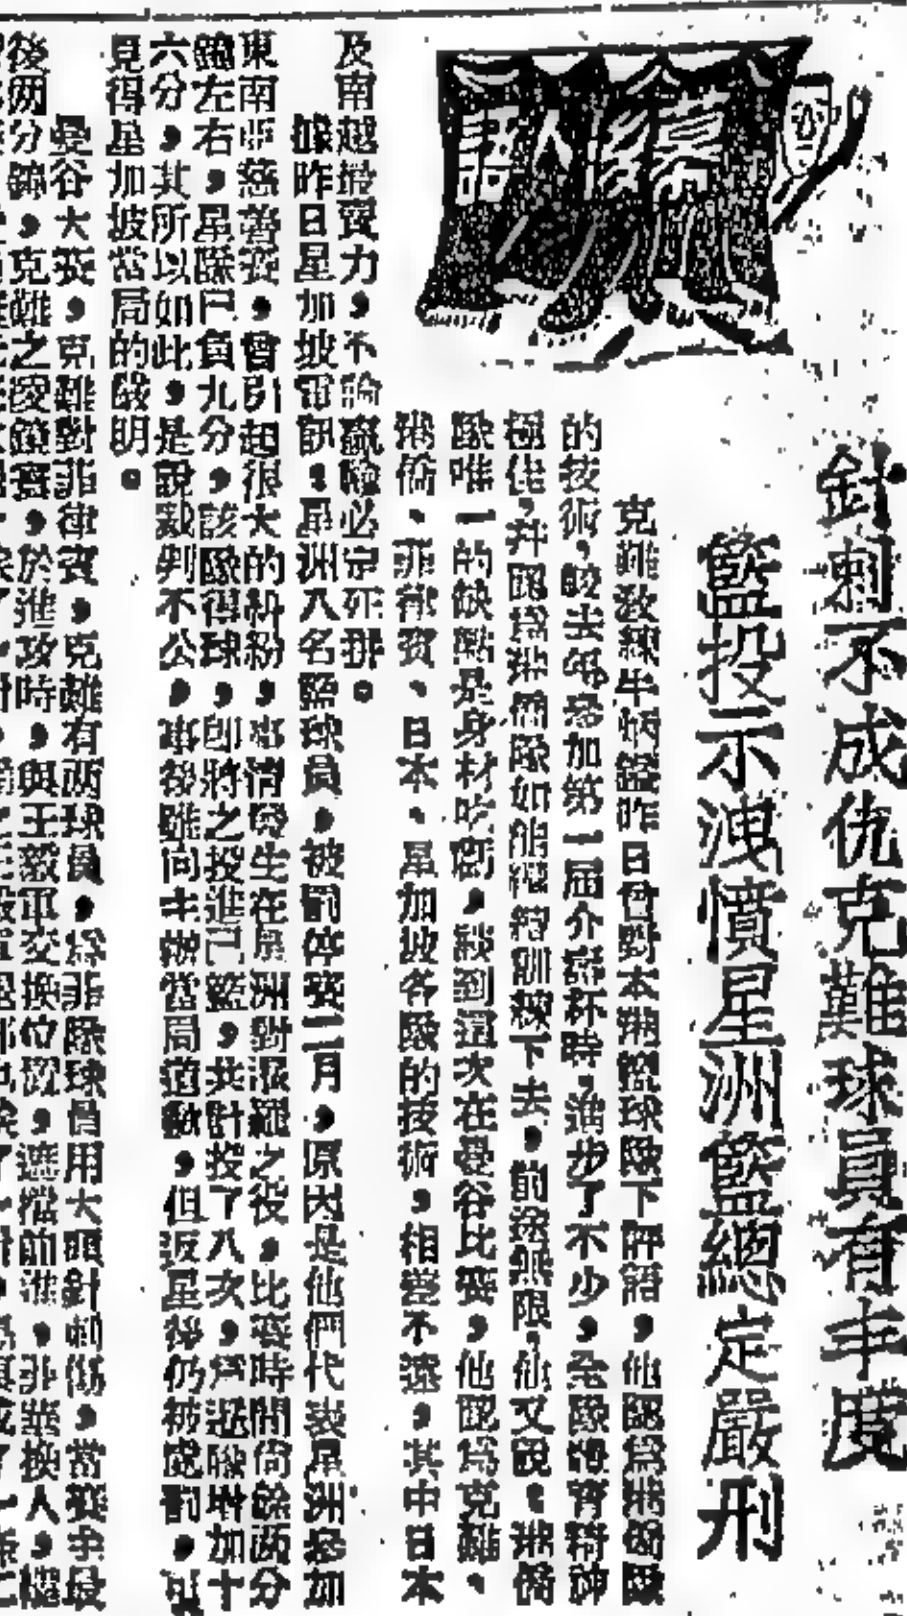 針刺不成仇克難球員有丰度
籃投示洩憤星洲籃總定嚴刑
幕後人語
克難教練牛炳鎰昨日曾對本港籃球隊下評語，他認爲港僑隊
的技術，較去年參加第一屆介壽杯時，進步了不少，全隊體育精神
極佳，并認爲港僑隊如能繼續訓練下去，前途無限，他又說：港僑
隊唯一的缺點是身材吃虧，談到這次在曼谷比賽，他認爲克難、
港僑、菲律賓、日本、星加坡各隊的技術，相差不遠，其中日本
及南越最賣力，不論贏輸必定死拼。
據昨日星加坡電訊：星洲八名籃球員，被罰停賽二月，原因是他們代表星洲參加
東南亞慈善賽，曾引起很大的糾紛，事情發生在星洲對暹羅之役，比賽時間尚餘兩分
鐘左右，星隊已負九分，該隊得球，即將之投進己籃，共計投了八次，
六分，其所以如此，是說裁判不公，事後雖向主辦當局道歉，但返星後仍被處罰，可
見得星加坡當局的嚴明。
曼谷大賽，克難對菲律賓，克難有兩球員，爲菲隊球員用大頭針刺傷，當賽事最
後兩分鐘，克難之凌鏡寰，於進攻時，與王毅軍交換位置，遮擋前進，菲華換人，